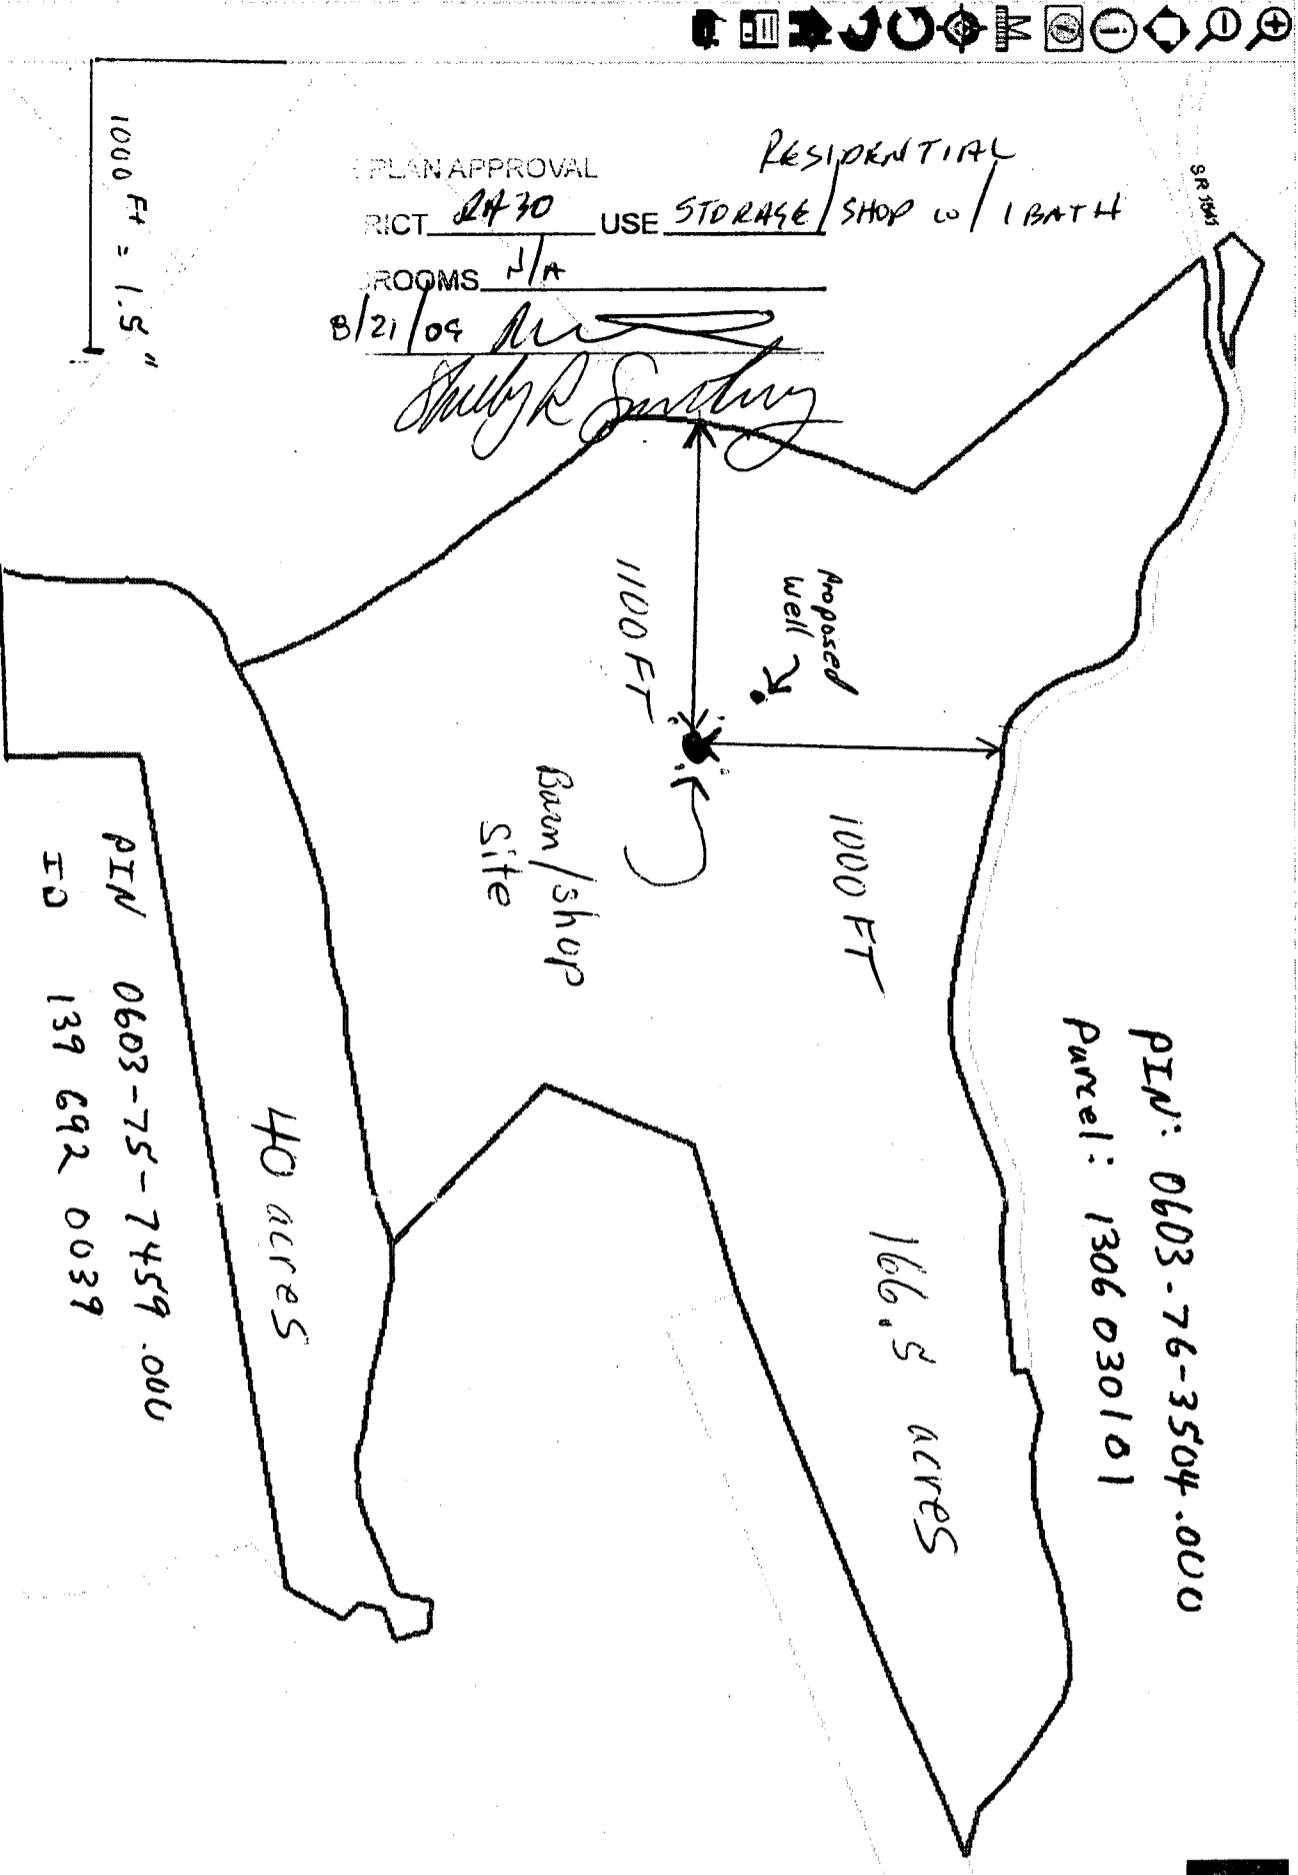 RESIDENTIAL
PLAN APPROVAL
RICT RA30 USE STORAGE/SHOP w/ 1 BATH
ROOMS N/A
8/21/09
Shelby R
1000 Ft = 1.5"
SR 1541
Proposed
well
1100 FT
1000 FT
Barn/shop
Site
PIN: 0603-76-3504.000
Parcel: 1306 030101
166.5 acres
40 acres
PIN 0603-75-7459.000
ID 139 692 0039